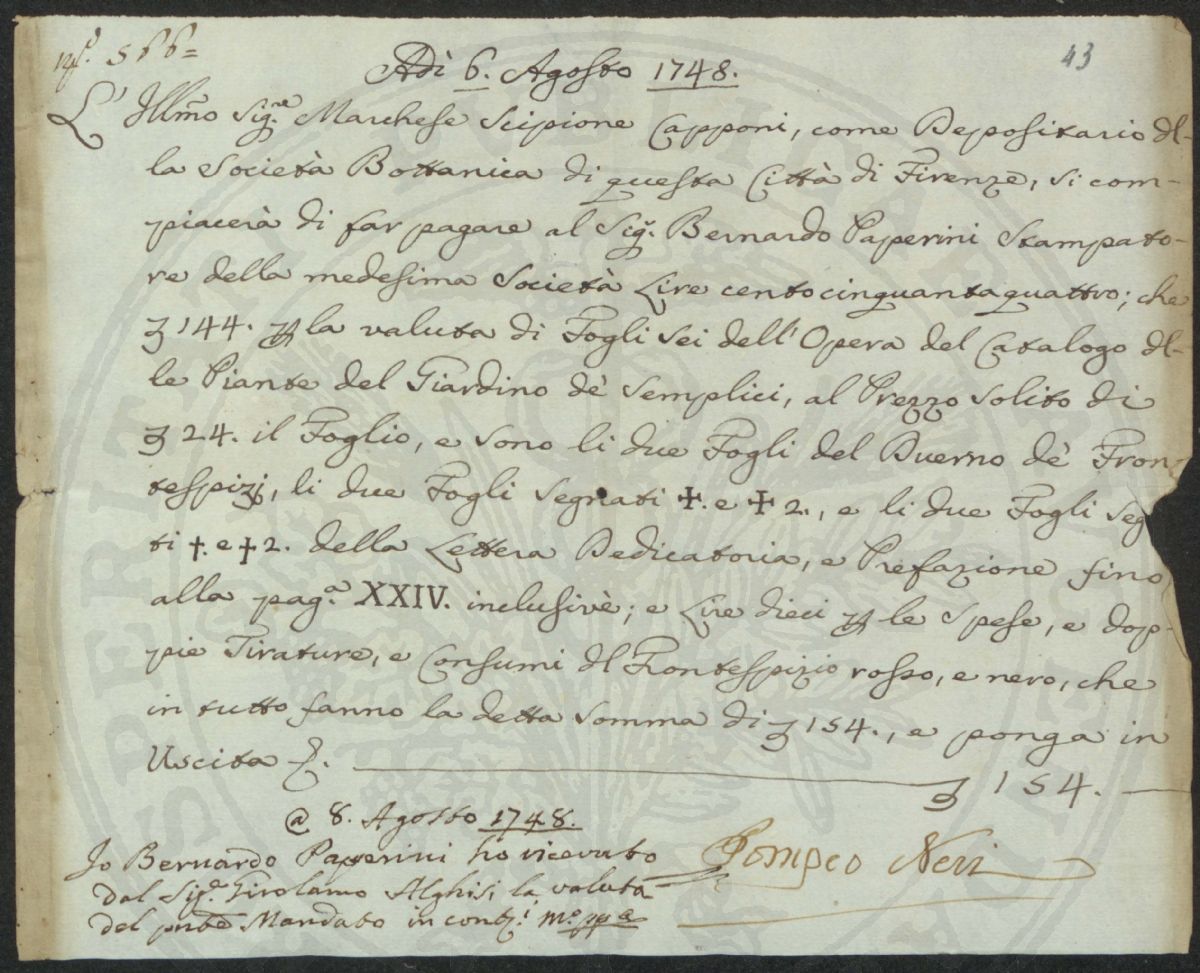 nº. 566=
43
Adì 6. Agosto 1748.
L' Illmo Sigre. Marchese Scipione Capponi, come Depositario dl-
la Società Bottanica di questa Città di Firenze, si com-
piacerà di far pagare al Sigr. Bernardo Paperini Stampato-
re della medesima Società Lire centocinquantaquattro; che
₤ 144. p la valuta di Fogli sei dell' Opera del Catalogo dl-
le Piante del Giardino de' Semplici, al Prezzo solito di
₤ 24. il Foglio, e sono li due Fogli del Duerno de' Fron-
tespizj, li due Fogli segnati ✠. e ✠ 2., e li due Fogli seg
ti †. e † 2. della Lettera Dedicatoria, e Prefazione fino
alla paga. XXIV. inclusivè; e Lire dieci p le Spese, e dop-
pie Tirature, e Consumi dl Frontespizio rosso, e nero, che
in tutto fanno la detta Somma di ₤ 154., e ponga in
Uscita ₤ 154.
@ 8. Agosto 1748.
Io Bernardo Paperini ho ricevuto
dal Sigr. Girolamo Alghisi la valuta
del pnte Mandato in contti mo ppa
Pompeo Neri